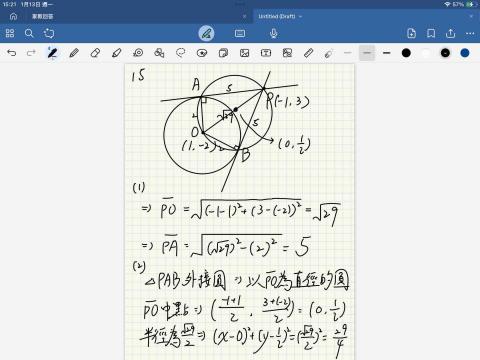 15:21 1月13日 週一
57%
家教回答
Untitled (Draft)
15
A
5
P(-1,3)
2
√29
5
O
(1,-2)
2
B
(0,1/2)
(1)
⇒ PO = √((-1-1)²+(3-(-2))²) = √29
⇒ PA = √((√29)²-(2)²) = 5
(2)
△PAB外接圓 ⇒ 以PO為直徑的圓
PO中點 ⇒ (-1+1/2, 3+(-2)/2) = (0,1/2)
半徑為√29/2 ⇒ (x-0)²+(y-1/2)²=(√29/2)²=29/4